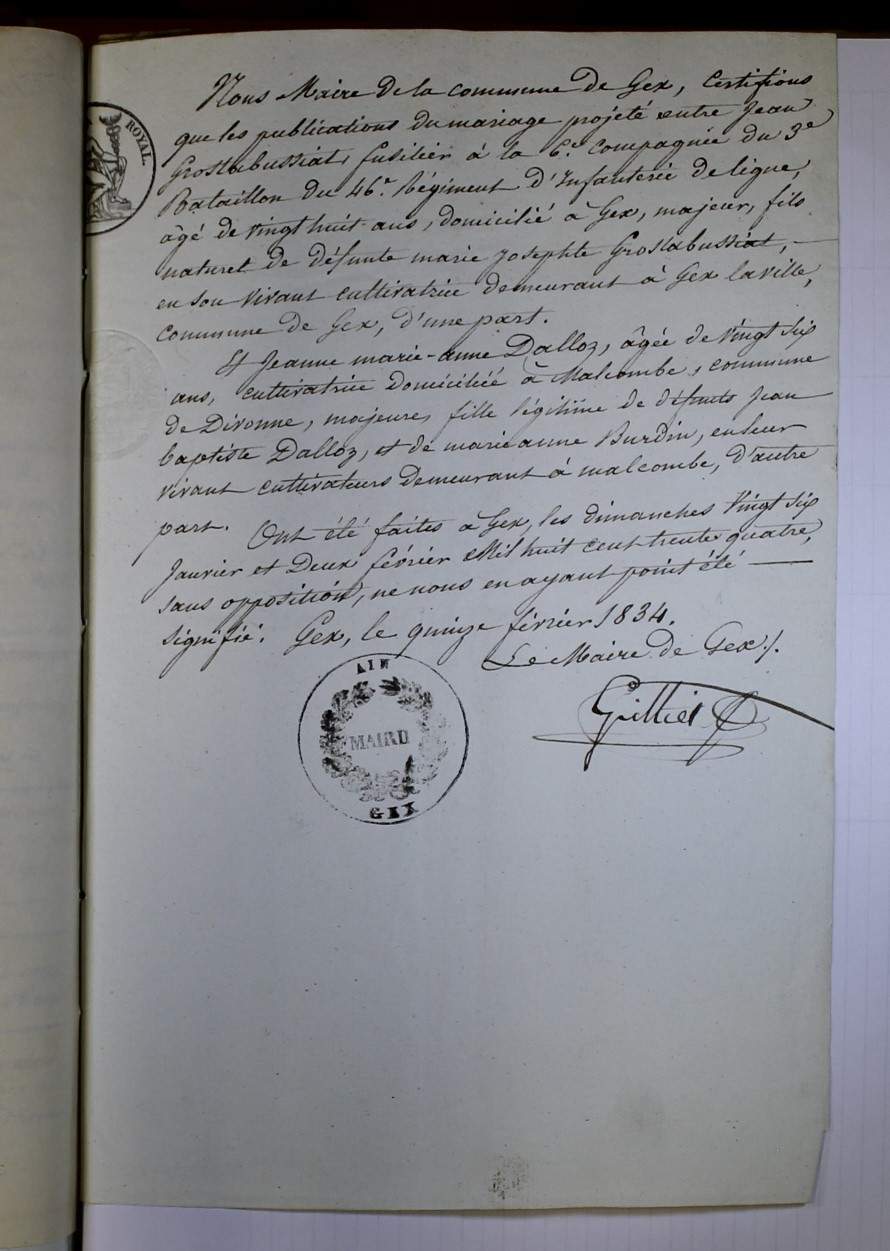 ROYAL.
Nous Maire de la commune de Gex, Certifions
que les publications du mariage projeté entre Jean
Groslabussiat, fusilier à la 6e. Compagnie du 3e
Bataillon du 46e. Régiment d'Infanterie de ligne,
âgé de vingt huit ans, domicilié à Gex, majeur, fils
naturel de défunte marie Josephte Groslabussiat,
en son vivant cultivatrice demeurant à Gex la ville,
Commune de Gex, d'une part.
Et Jeanne marie-anne Dalloz, âgée de vingt six
ans, cultivatrice domiciliée à Malcombe, commune
de Divonne, majeure, fille légitime de défunts Jean
baptiste Dalloz, et de marie anne Burdin, en leur
vivant cultivateurs demeurant à malcombe, d'autre
part. Ont été faites à Gex, les dimanches vingt six
Janvier et Deux février Mil huit cent trente quatre,
sans opposition, ne nous en ayant point été —
signifié. Gex, le quinze février 1834.
Le Maire de Gex /.
AIN
MAIRIE
GEX